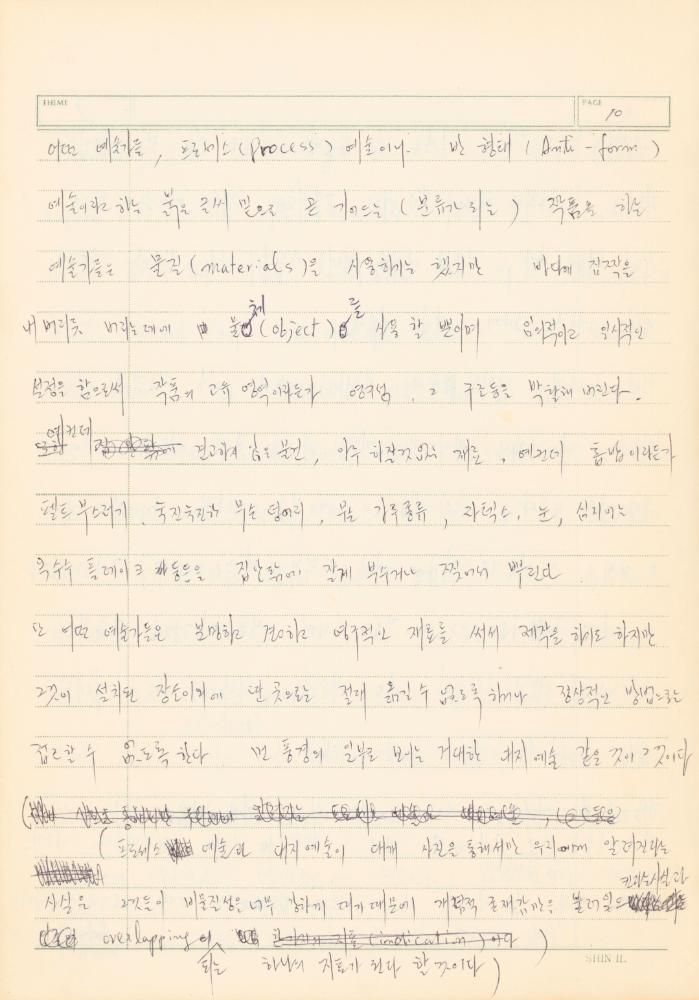 THEME
PAGE
10
어떤 예술가들, 프로세스 (Process) 예술이니 반 형태 (Anti-form)
예술이라고 하는 붉은 글씨 밑으로 (분류가 되는) 작품을 하는
예술가들은 물질 (materials)을 사용하기는 했지만 바다에
내버리듯 버리는데에 물체 (object)를 사용 할 뿐이며 임의적이고 일시적인
설정을 함으로써 작품의 고유 영역이라든가 영구성, 그 구조등을 박탈해 버린다.
예컨데 견고하지 않은 물건, 아주 하잘것없는 재료, 예컨데 톱밥이라든가
펠트 부스러기, 묵은 덩어리, 가루종류, 라텍스, 눈, 심지어는
옥수수 플레이크 등등을 집안팎에 잘게 부수거나 찢어서 뿌린다
또 어떤 예술가들은 분명하고 견고하고 영구적인 재료를 써서 제작을 하기도 하지만
그것이 설치된 장소이외에 딴 곳으로는 절대 옮길 수 없도록 하거나 정상적인 방법으로는
접근할 수 없도록 한다 먼 풍경의 일부로 보이는 거대한 대지예술 같은 것이 그것이다
(프로세스 예술과 대지예술이 대개 사진을 통해서만 우리에게 알려진다는
사실은 그것들이 비물질성을 너무 강하게 띠기 때문에 개념적 존재감만을 불러일으킨다는 사실과
overlapping 되는 하나의 지표가 된다 할 것이다)
SHIN IL